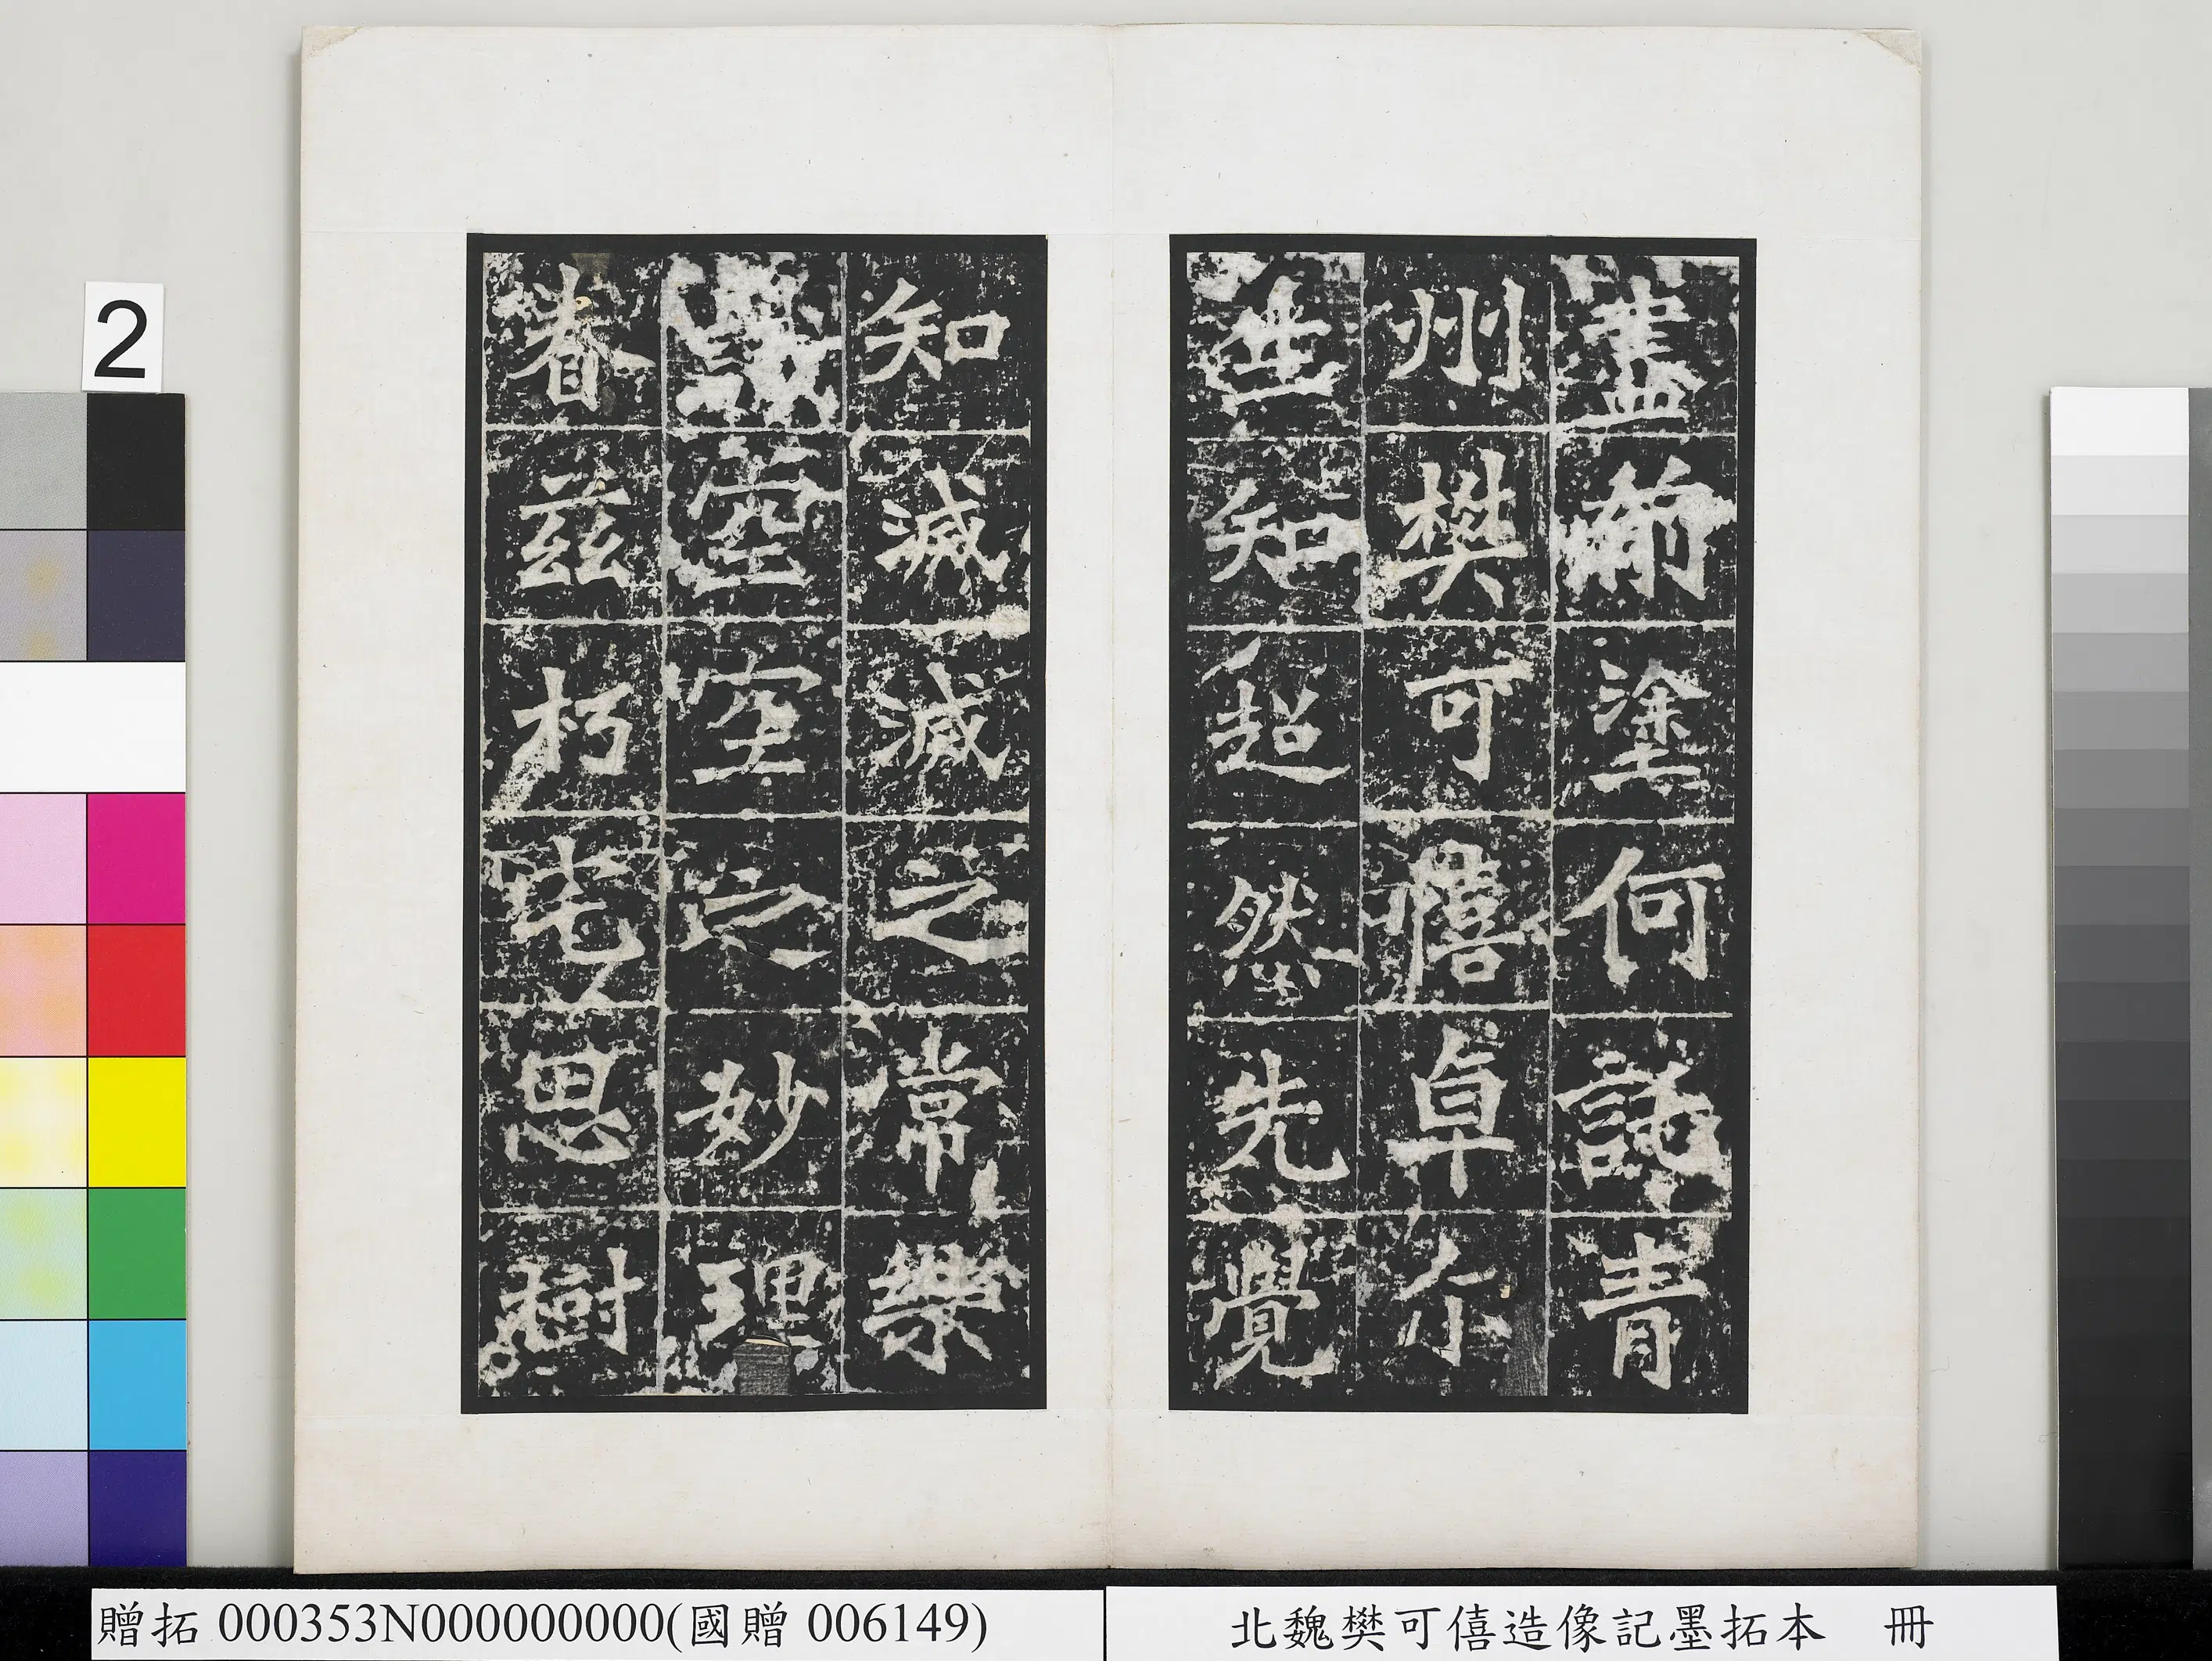 2
盡䘚塗何託青
州樊可憘卓尒
生知超然先覺
知滅滅之常樂
識空空之妙理
眷茲朽宅思樹
贈拓 000353N000000000(國贈 006149)
北魏樊可僖造像記墨拓本 冊